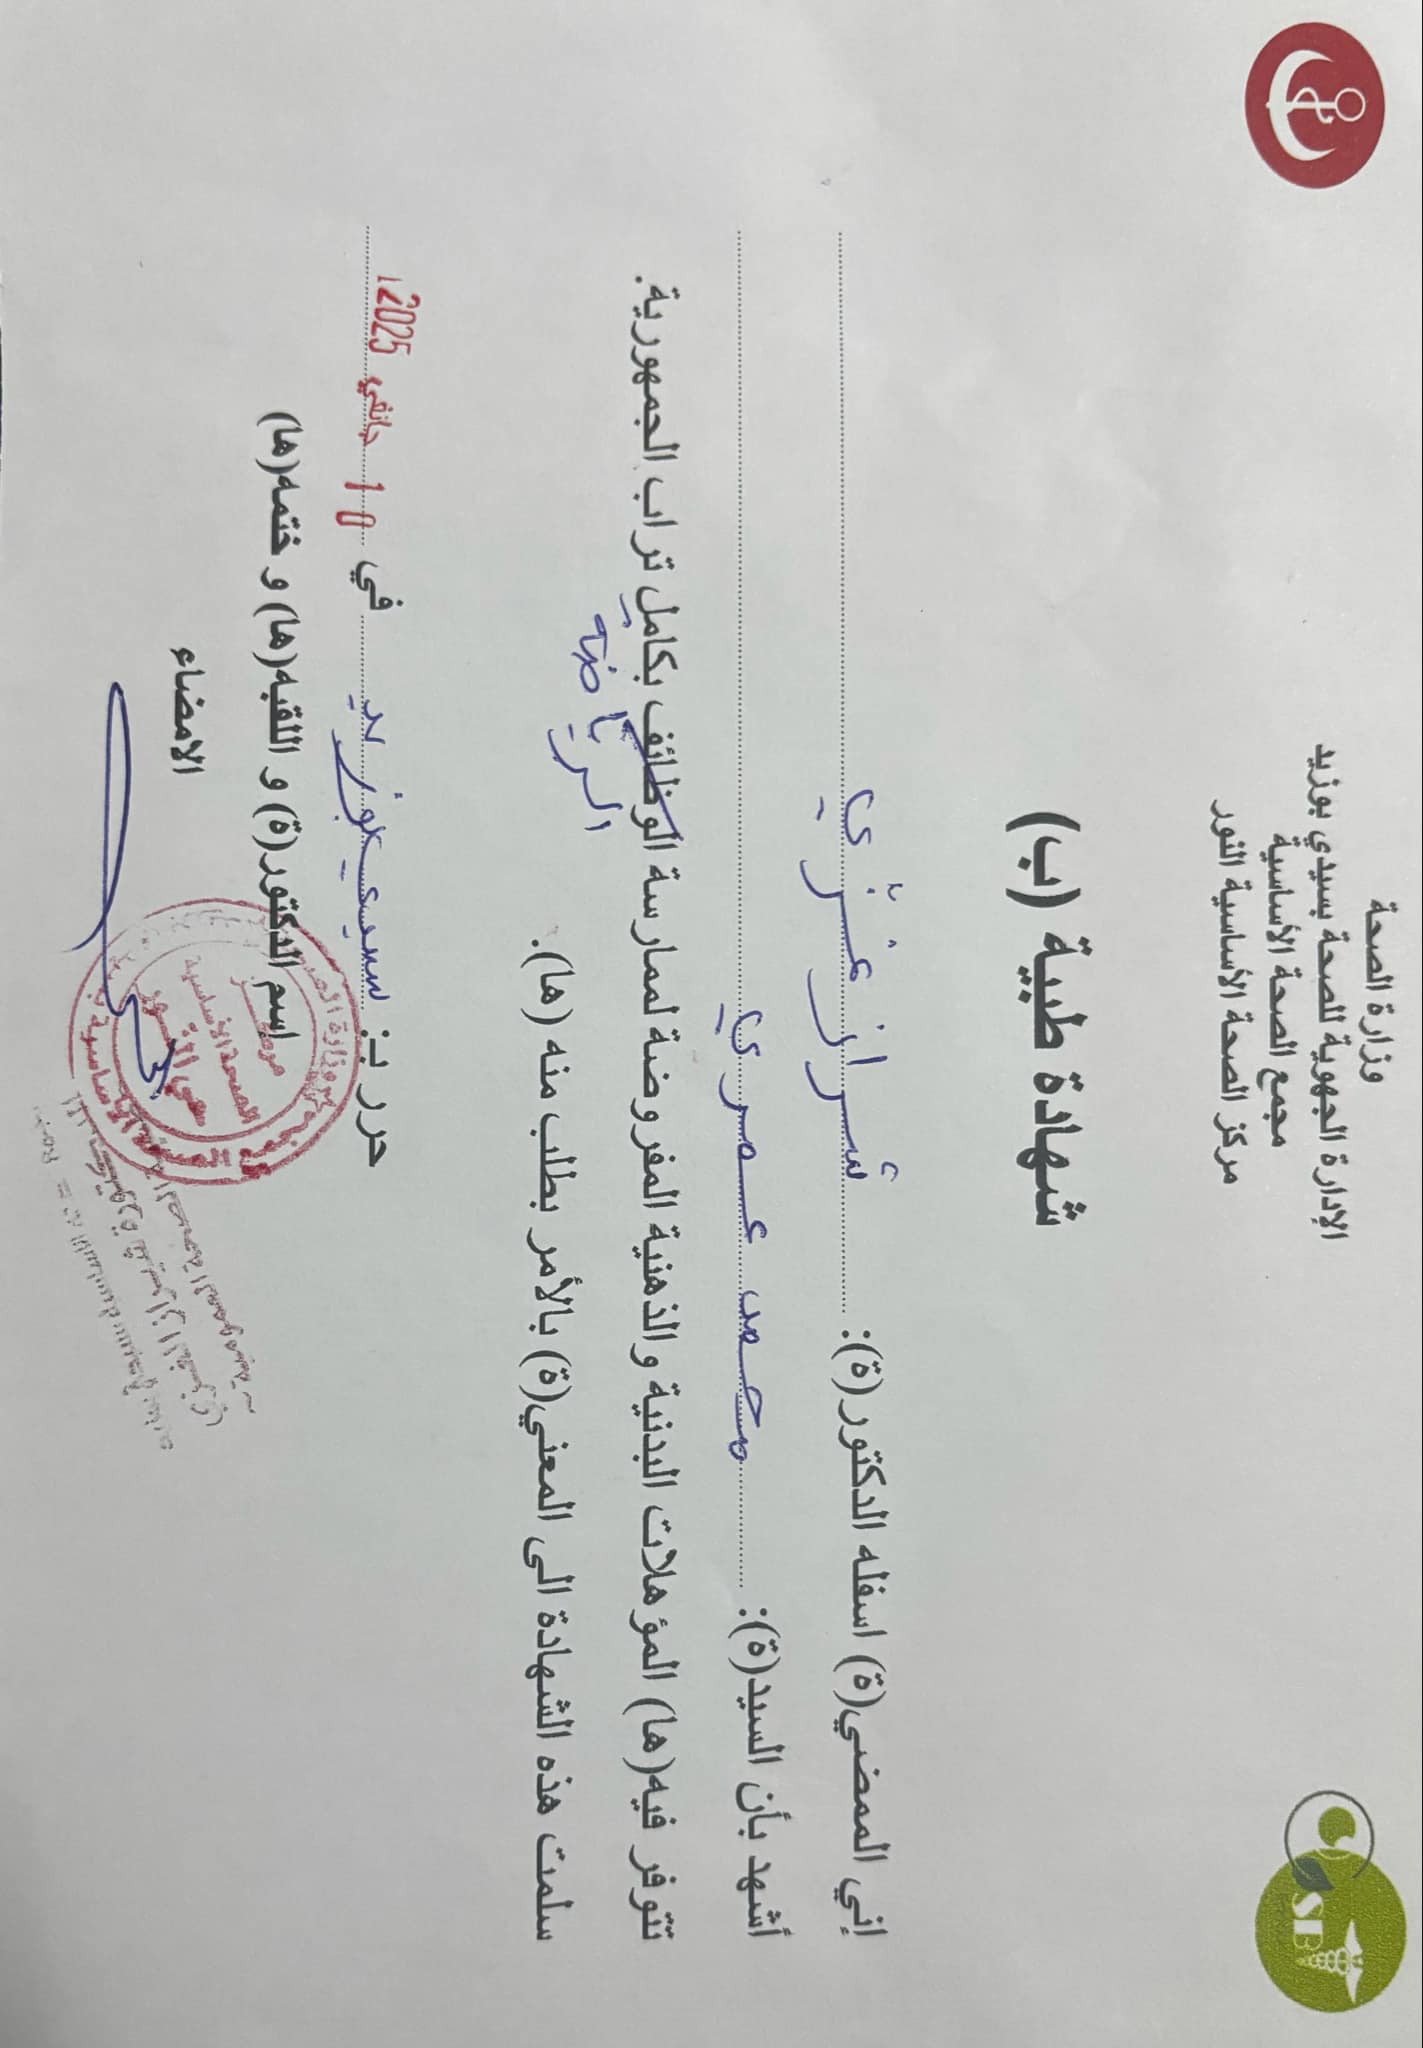 وزارة الصحة
الإدارة الجهوية للصحة بسيدي بوزيد
مجمع الصحة الأساسية
مركز الصحة الأساسية النور
SB
شهادة طبية (ب)
إني الممضي(ة) اسفله الدكتور(ة): شيراز غزي
أشهد بأن السيد(ة): محمد عمري
تتوفر فيه(ها) المؤهلات البدنية والذهنية المفروضة لممارسة الوظائف بكامل تراب الجمهورية.
الرياضة
سلمت هذه الشهادة الى المعني(ة) بالأمر بطلب منه (ها).
حرر بـ: سيدي بوزيد في 10 جانفي 2025
إسم الدكتور(ة) و اللقبه(ها) و ختمه(ها)
الامضاء
الصحة الأساسية
الصحة العمومية